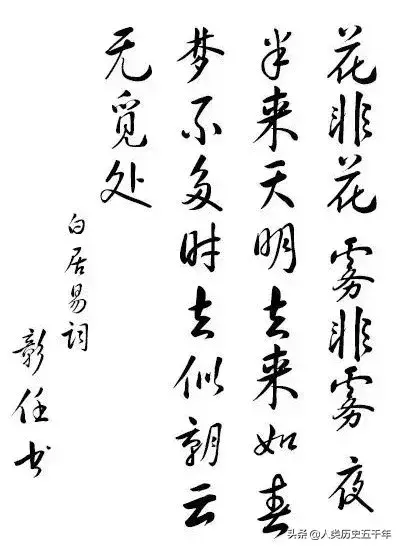 花非花雾非雾夜
半来天明去来如春
梦不多时去似朝云
无觅处
白居易词
彰任书
头条@人类历史五千年